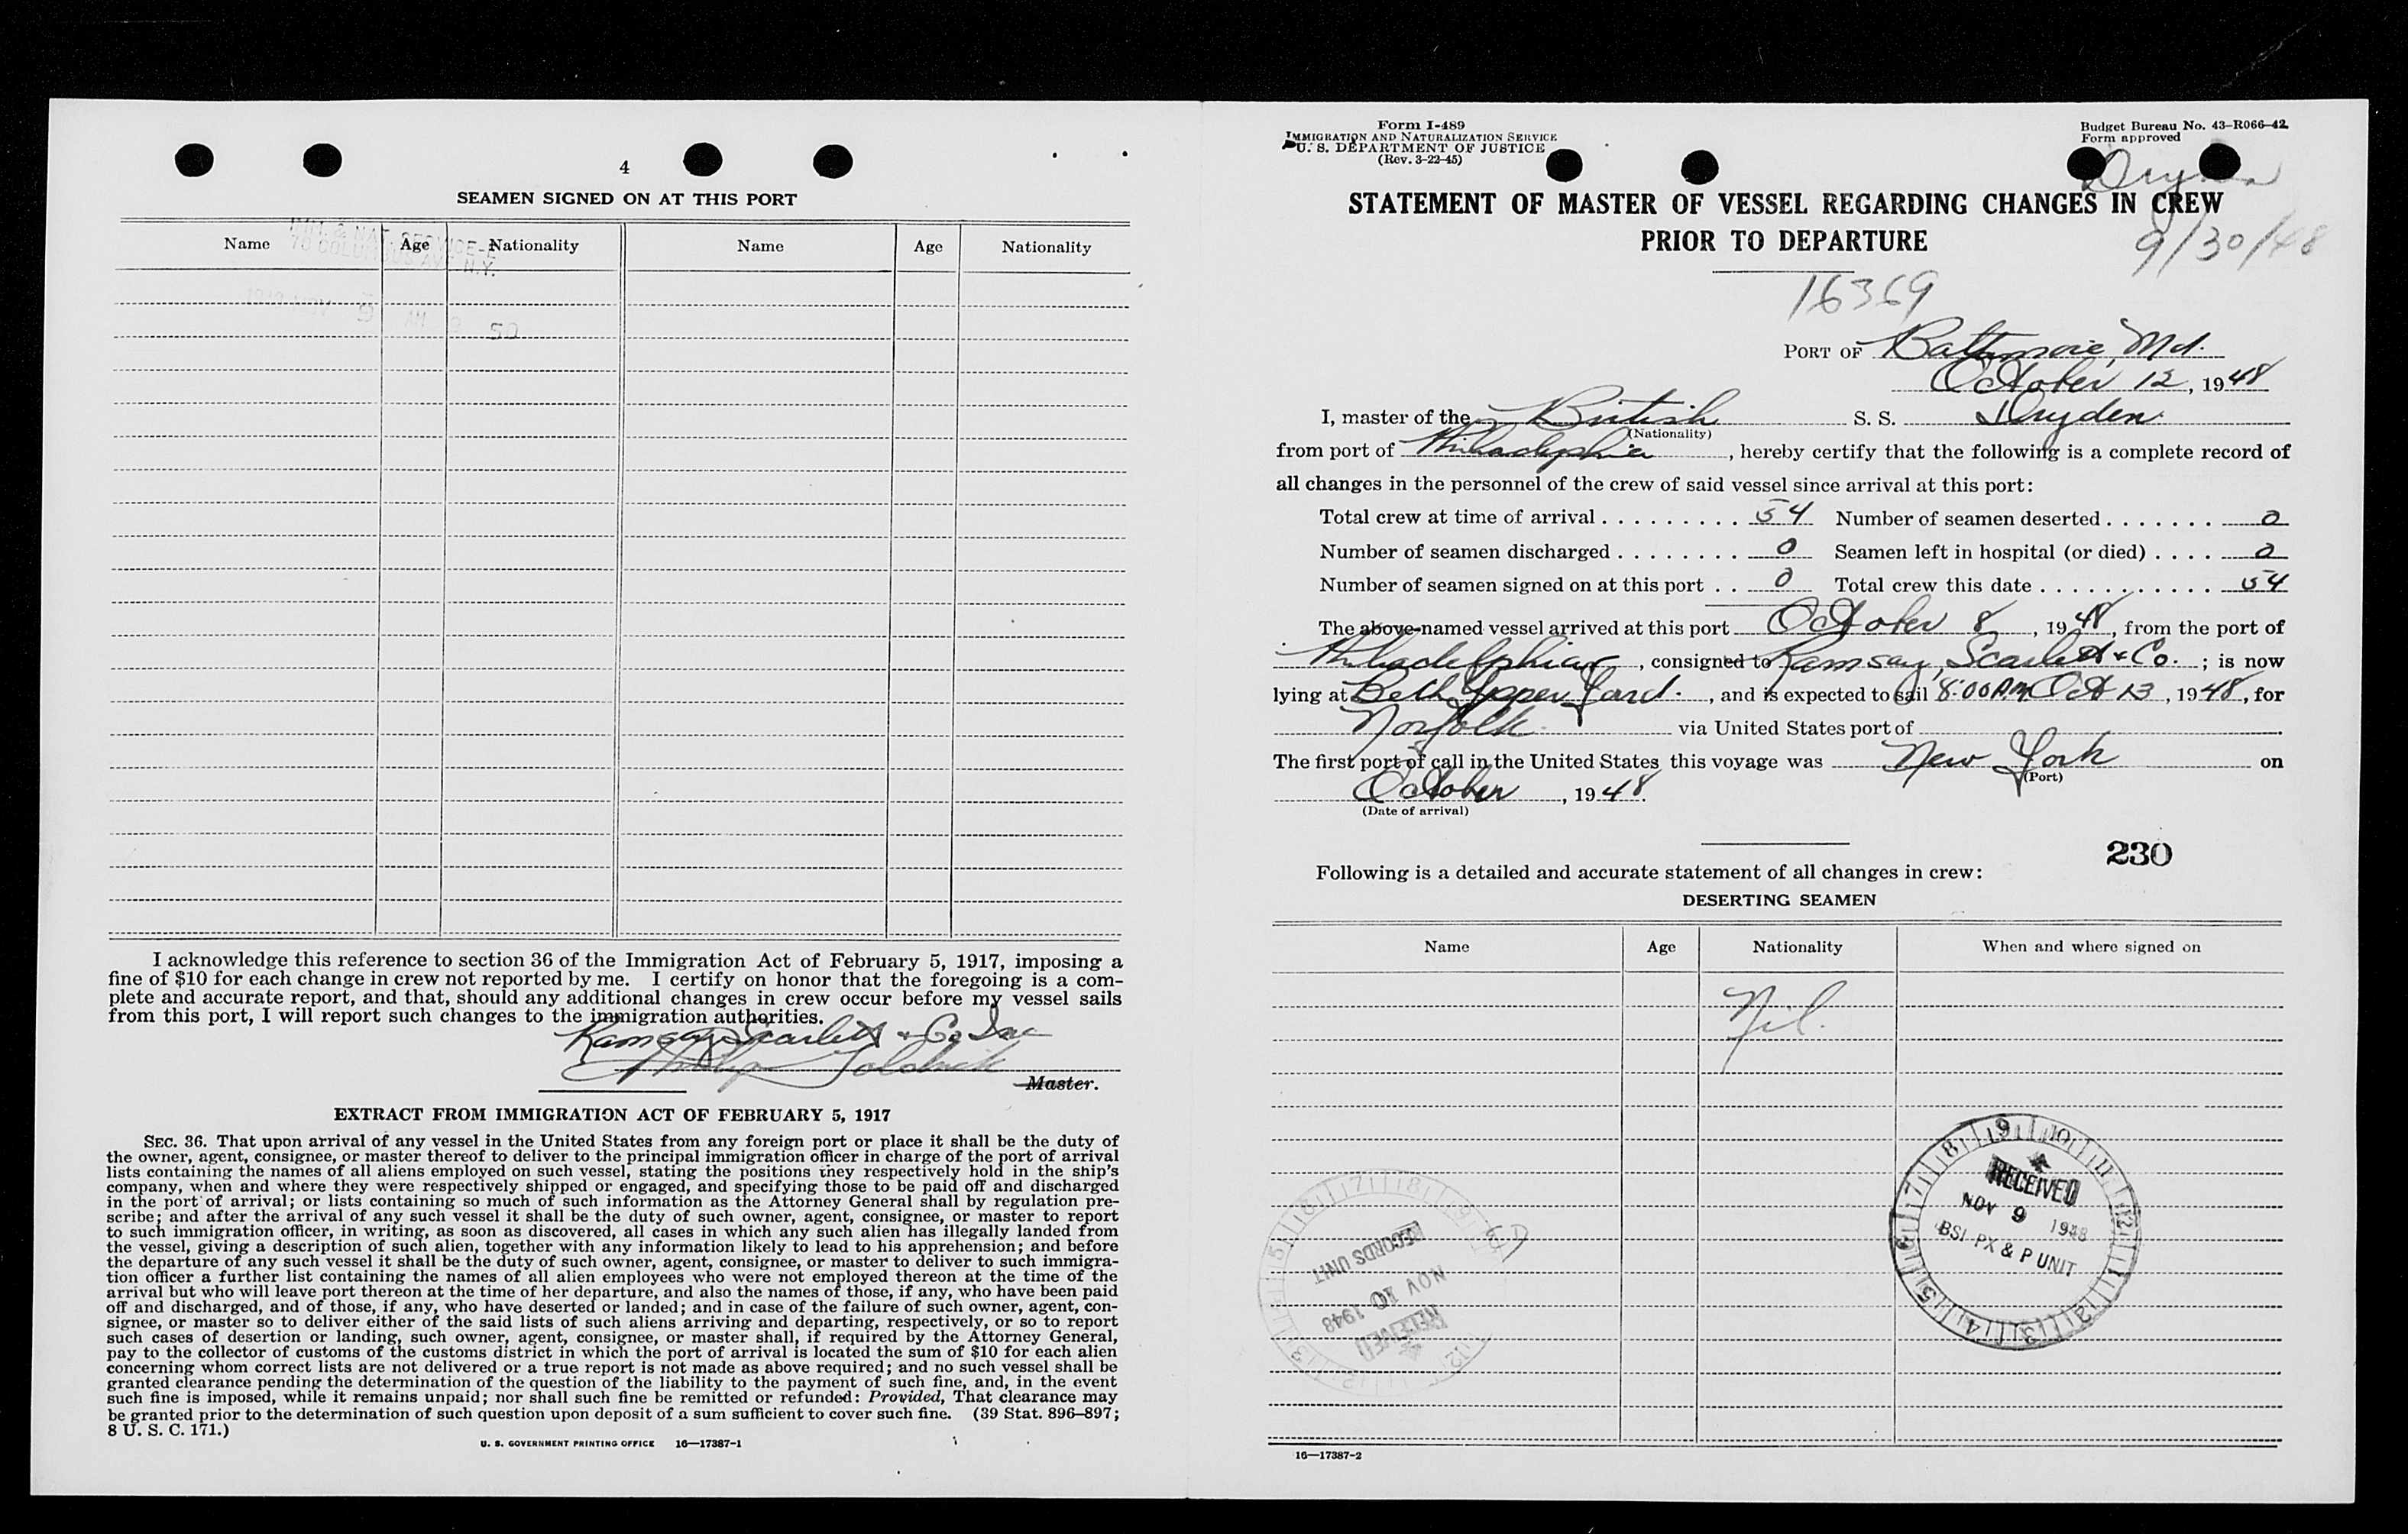 4
SEAMEN SIGNED ON AT THIS PORT
Name Age Nationality Name Age Nationality
70 COLUMBUS AV. N.Y.
9 AM 9 50
I acknowledge this reference to section 36 of the Immigration Act of February 5, 1917, imposing a
fine of $10 for each change in crew not reported by me. I certify on honor that the foregoing is a com-
plete and accurate report, and that, should any additional changes in crew occur before my vessel sails
from this port, I will report such changes to the immigration authorities.
Ramsay Scarlett & Co Inc
Master.
EXTRACT FROM IMMIGRATION ACT OF FEBRUARY 5, 1917
SEC. 36. That upon arrival of any vessel in the United States from any foreign port or place it shall be the duty of
the owner, agent, consignee, or master thereof to deliver to the principal immigration officer in charge of the port of arrival
lists containing the names of all aliens employed on such vessel, stating the positions they respectively hold in the ship's
company, when and where they were respectively shipped or engaged, and specifying those to be paid off and discharged
in the port of arrival; or lists containing so much of such information as the Attorney General shall by regulation pre-
scribe; and after the arrival of any such vessel it shall be the duty of such owner, agent, consignee, or master to report
to such immigration officer, in writing, as soon as discovered, all cases in which any such alien has illegally landed from
the vessel, giving a description of such alien, together with any information likely to lead to his apprehension; and before
the departure of any such vessel it shall be the duty of such owner, agent, consignee, or master to deliver to such immigra-
tion officer a further list containing the names of all alien employees who were not employed thereon at the time of the
arrival but who will leave port thereon at the time of her departure, and also the names of those, if any, who have been paid
off and discharged, and of those, if any, who have deserted or landed; and in case of the failure of such owner, agent, con-
signee, or master so to deliver either of the said lists of such aliens arriving and departing, respectively, or so to report
such cases of desertion or landing, such owner, agent, consignee, or master shall, if required by the Attorney General,
pay to the collector of customs of the customs district in which the port of arrival is located the sum of $10 for each alien
concerning whom correct lists are not delivered or a true report is not made as above required; and no such vessel shall be
granted clearance pending the determination of the question of the liability to the payment of such fine, and, in the event
such fine is imposed, while it remains unpaid; nor shall such fine be remitted or refunded: Provided, That clearance may
be granted prior to the determination of such question upon deposit of a sum sufficient to cover such fine. (39 Stat. 896–897;
8 U. S. C. 171.)
U. S. GOVERNMENT PRINTING OFFICE 16—17387-1
Form I-489
IMMIGRATION AND NATURALIZATION SERVICE
U. S. DEPARTMENT OF JUSTICE
(Rev. 3-22-45)
Budget Bureau No. 43–R066–42
Form approved
Dryden
9/30/48
STATEMENT OF MASTER OF VESSEL REGARDING CHANGES IN CREW
PRIOR TO DEPARTURE
16369
PORT OF Baltimore, Md.
October 12, 1948
I, master of the British S. S. Dryden
(Nationality)
from port of Philadelphia, hereby certify that the following is a complete record of
all changes in the personnel of the crew of said vessel since arrival at this port:
Total crew at time of arrival . . . . . . . . . 54 Number of seamen deserted . . . . . . . 0
Number of seamen discharged . . . . . . . . 0 Seamen left in hospital (or died) . . . . 0
Number of seamen signed on at this port . . 0 Total crew this date . . . . . . . . . . . . 54
The above-named vessel arrived at this port October 8, 1948, from the port of
Philadelphia, consigned to Ramsay, Scarlett & Co. ; is now
lying at Beth Upper Yard., and is expected to sail 8:00 A.M. Oct 13, 1948, for
Norfolk via United States port of
The first port of call in the United States this voyage was New York on
(Port)
October, 1948.
(Date of arrival)
230
Following is a detailed and accurate statement of all changes in crew:
DESERTING SEAMEN
Name Age Nationality When and where signed on
Nil.
RECEIVED
NOV 9 1948
BSI PX & P UNIT
RECEIVED
NOV 10 1948
RECORDS UNIT
16—17387-2